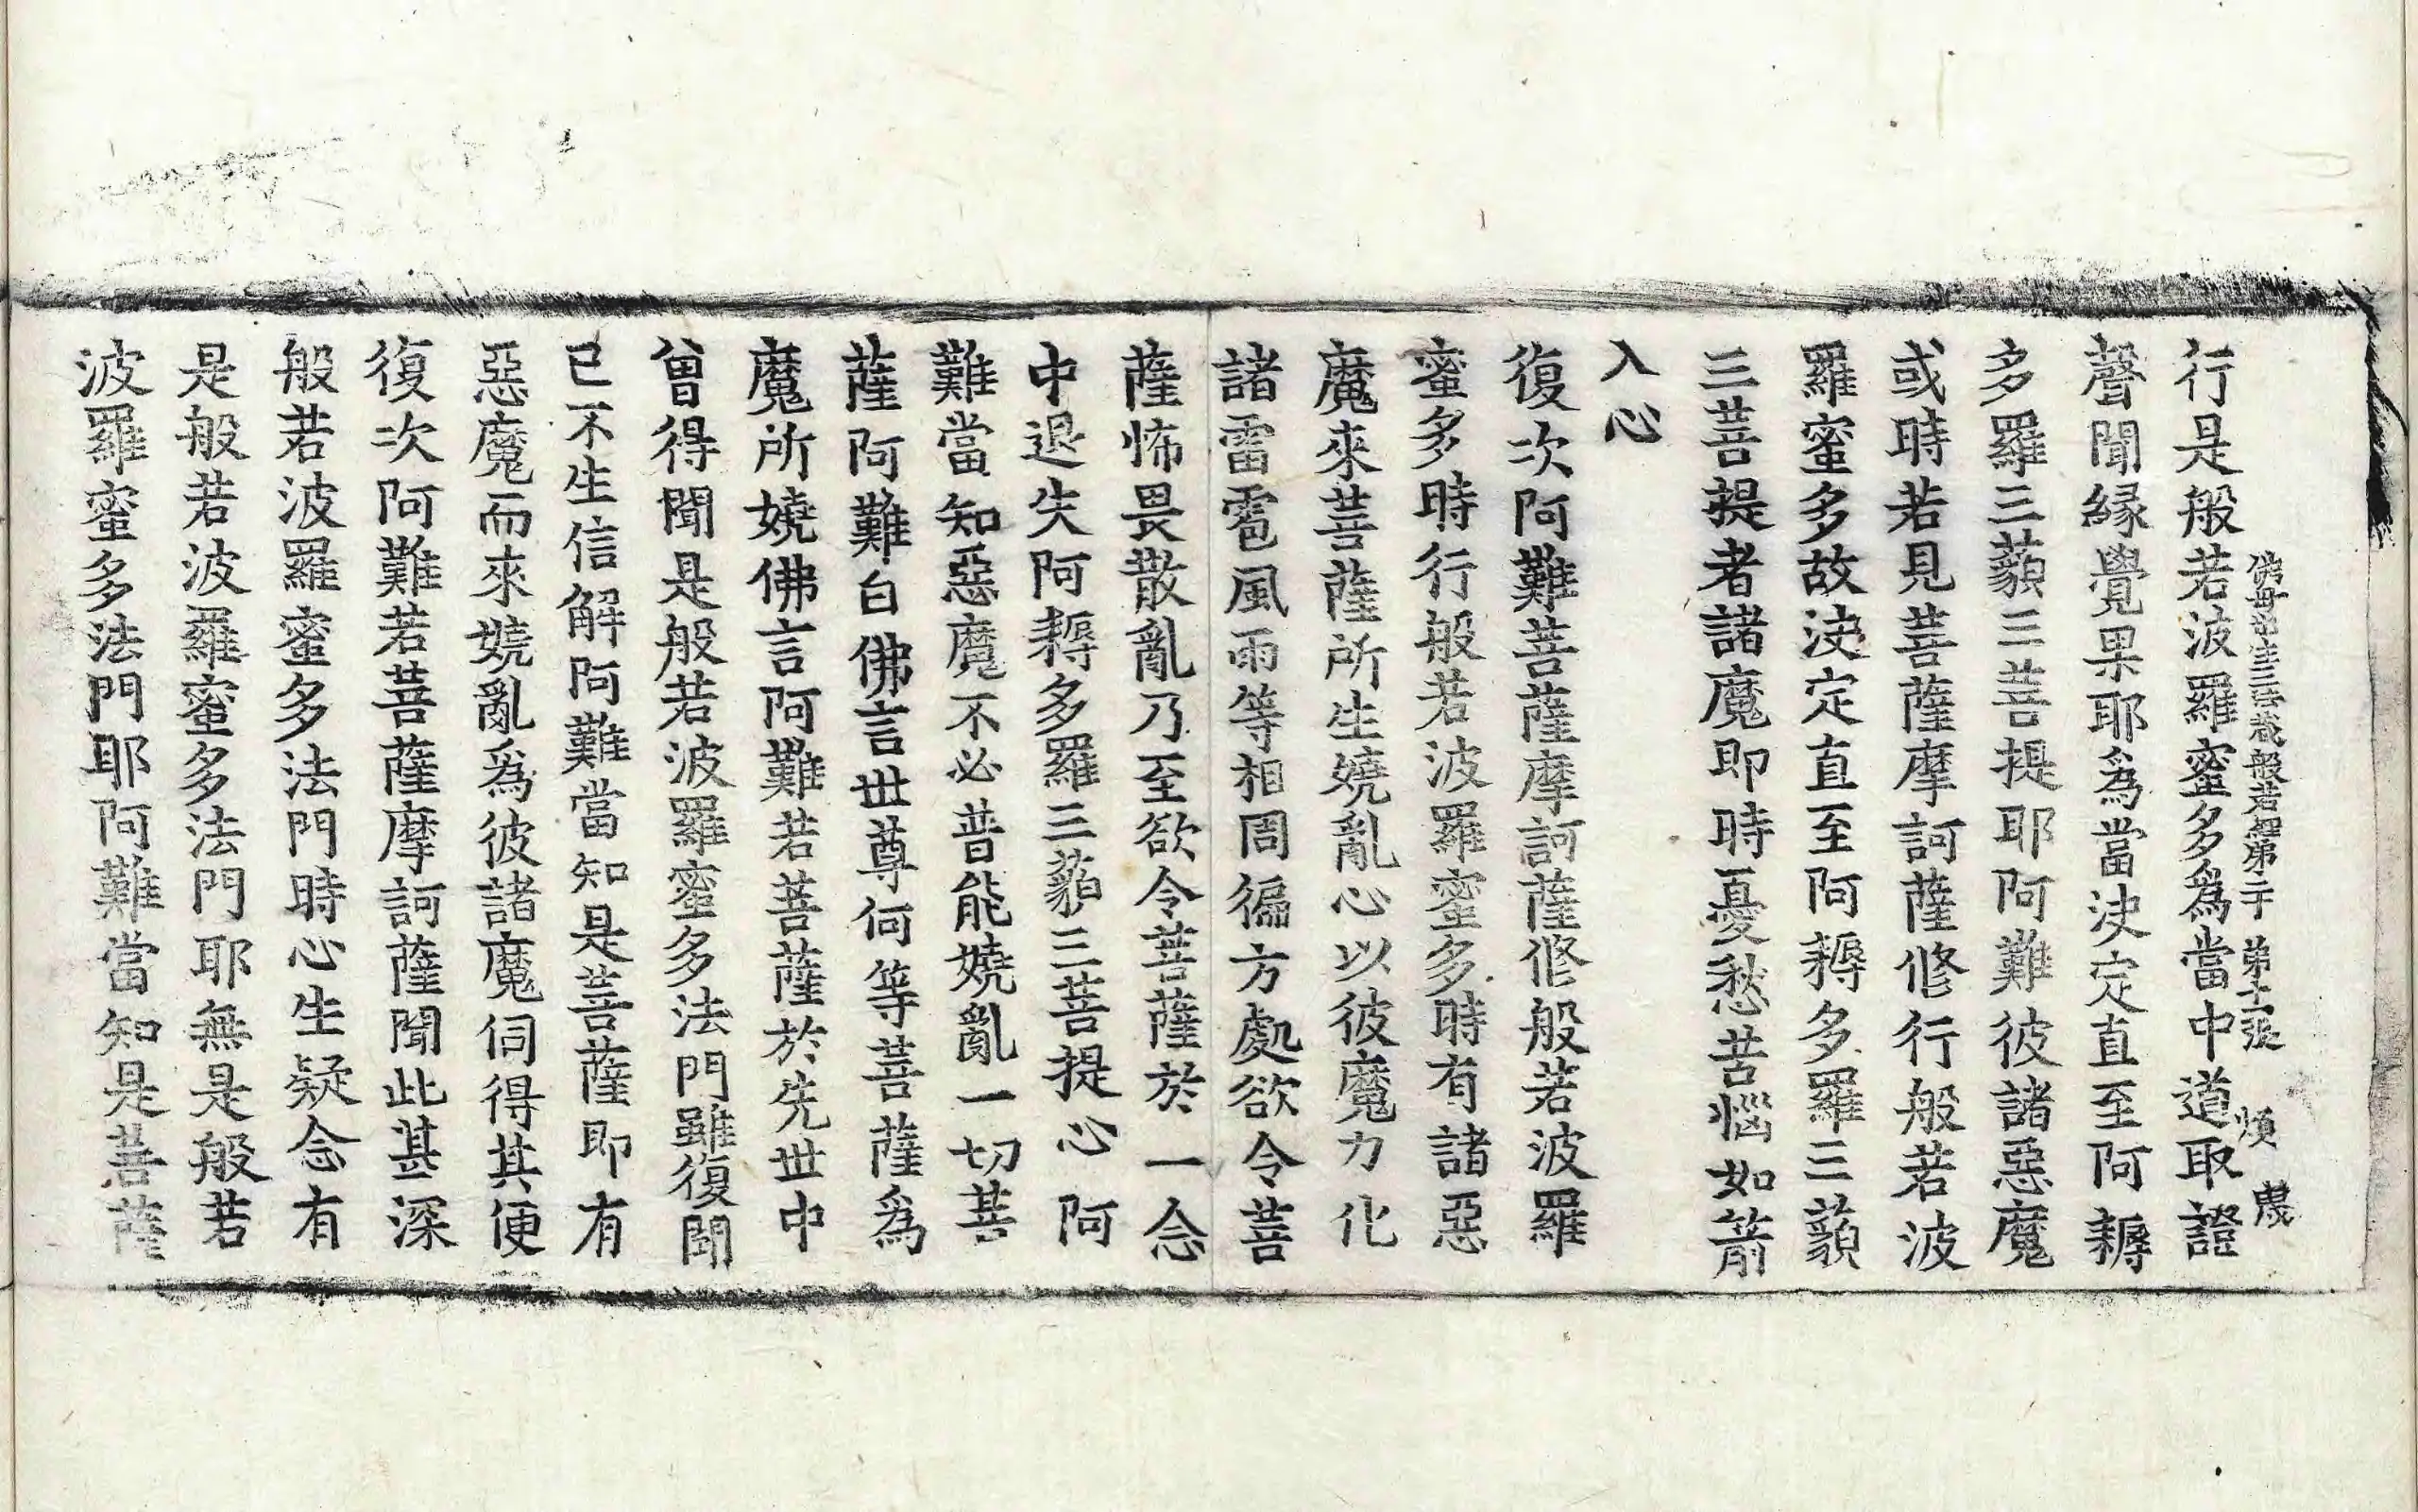 佛母出生三法藏般若經第二十 第十一張 煩
行是般若波羅蜜多爲當中道取證
聲聞緣覺果耶爲當决定直至阿耨
多羅三藐三菩提耶阿難彼諸惡魔
或時若見菩薩摩訶薩修行般若波
羅蜜多故决定直至阿耨多羅三藐
三菩提者諸魔即時憂愁苦惱如箭
入心
復次阿難菩薩摩訶薩修般若波羅
蜜多時行般若波羅蜜多時有諸惡
魔來菩薩所生嬈亂心以彼魔力化
諸雷雹風雨等相周徧方處欲令菩
薩怖畏散亂乃至欲令菩薩於一念
中退失阿耨多羅三藐三菩提心阿
難當知惡魔不必普能嬈亂一切菩
薩阿難白佛言世尊何等菩薩爲
魔所嬈佛言阿難若菩薩於先世中
曾得聞是般若波羅蜜多法門雖復聞
已不生信解阿難當知是菩薩即有
惡魔而來嬈亂爲彼諸魔伺得其便
復次阿難若菩薩摩訶薩聞此甚深
般若波羅蜜多法門時心生疑念有
是般若波羅蜜多法門耶無是般若
波羅蜜多法門耶阿難當知是菩薩